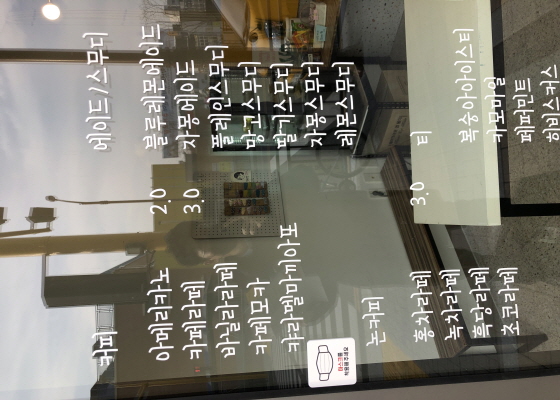 커피
아메리카노 2.0
카페라떼 3.0
바닐라라떼
카페모카
캬라멜마끼아또
논커피
홍차라떼 3.0
녹차라떼
흑당라떼
쵸코라떼
에이드/스무디
블루레몬에이드
자몽에이드
플레인스무디
망고스무디
딸기스무디
자몽스무디
레몬스무디
티
복숭아아이스티
카모마일
페퍼민트
히비스커스
마스크를
착용해 주세요